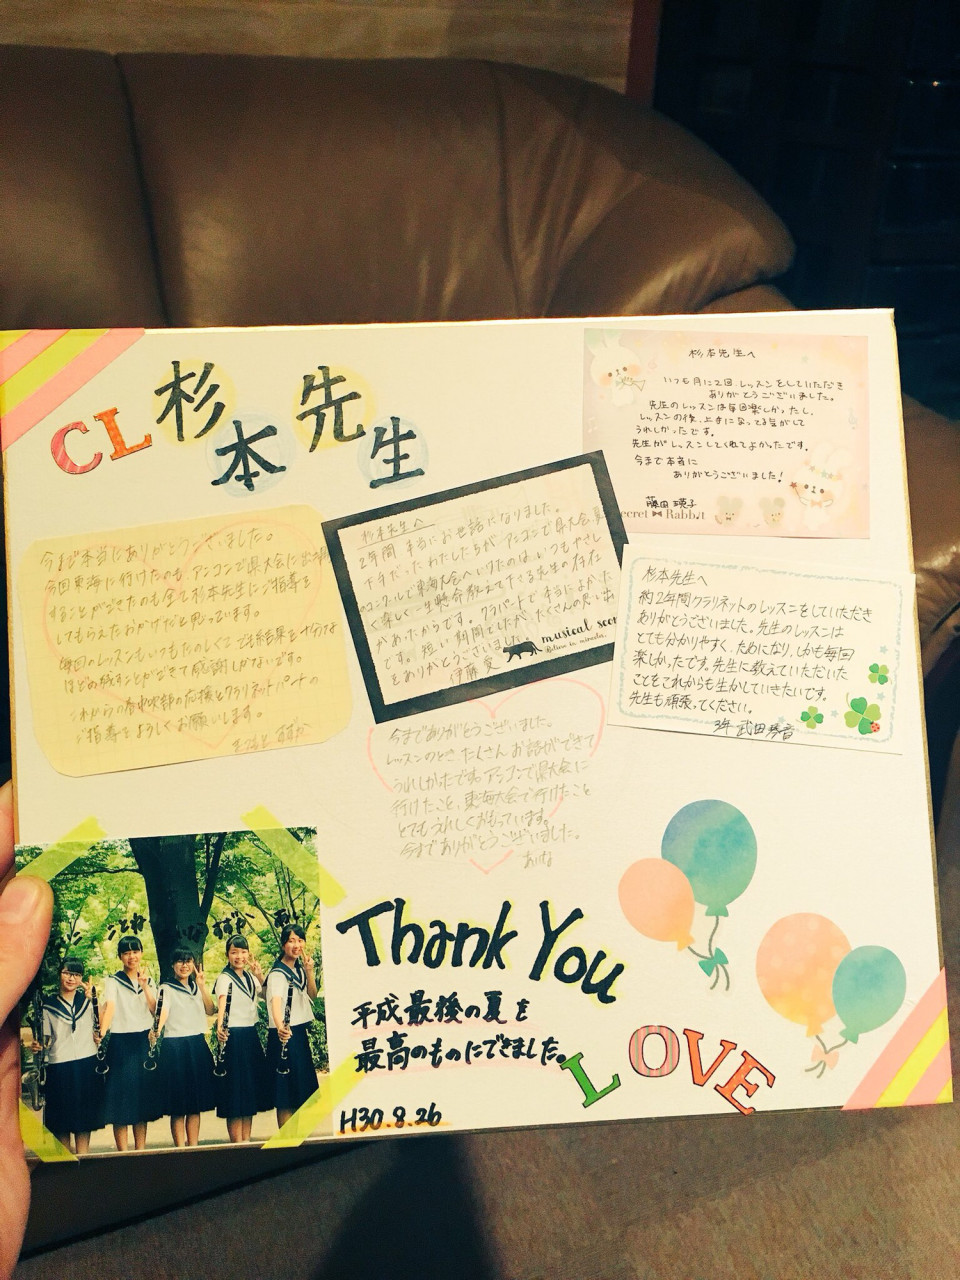 CL 杉本先生
杉本先生へ
いつも月に2回、レッスンをしていただき
ありがとうございました。
先生のレッスンは毎回楽しかったし、
レッスンの後、上手になってる気がして
うれしかったです。
先生がレッスンしてくれてよかったです。
今まで本当に
ありがとうございました!
藤田 瑛子
ecret Rabbit
今まで本当にありがとうございました。
今回東海に行けたのも、アンコンで県大会に出場
することができたのも全て杉本先生にご指導を
してもらえたおかげだと思っています。
毎回のレッスンもいつもたのしくて、結果を十分な
ほどの残すことができて感謝しかないです。
これからの吹部の応援とクラリネットパートの
ご指導をよろしくお願いします。
すずか
杉本先生へ
2年間 本当にお世話になりました。
下手だったわたしたちがアンコンで県大会、夏
のコンクールで東海大会へいけたのは、いつもやさし
く楽しく一生懸命教えて下さる先生の存在
があったからです。クラパートで本当によかった
です。短い期間でしたが、たくさんの思い出
をありがとうございました。
伊藤 愛
musical score
杉本先生へ
約2年間クラリネットのレッスンをしていただき
ありがとうございました。先生のレッスンは
とても分かりやすく、ためになり、しかも毎回
楽しかったです。先生に教えていただいた
ことをこれからも生かしていきたいです。
先生も頑張ってください。
3年 武田琴音
今までありがとうございました。
レッスンのとき たくさん お話ができて
うれしかったです。アンコンで県大会に
行けたこと、東海大会で行けたこと
とてもうれしくおもっています。
今までありがとうございました。
ことね
すずか
あい
Thank You
平成最後の夏を
最高のものにできました。
LOVE
H30.8.26